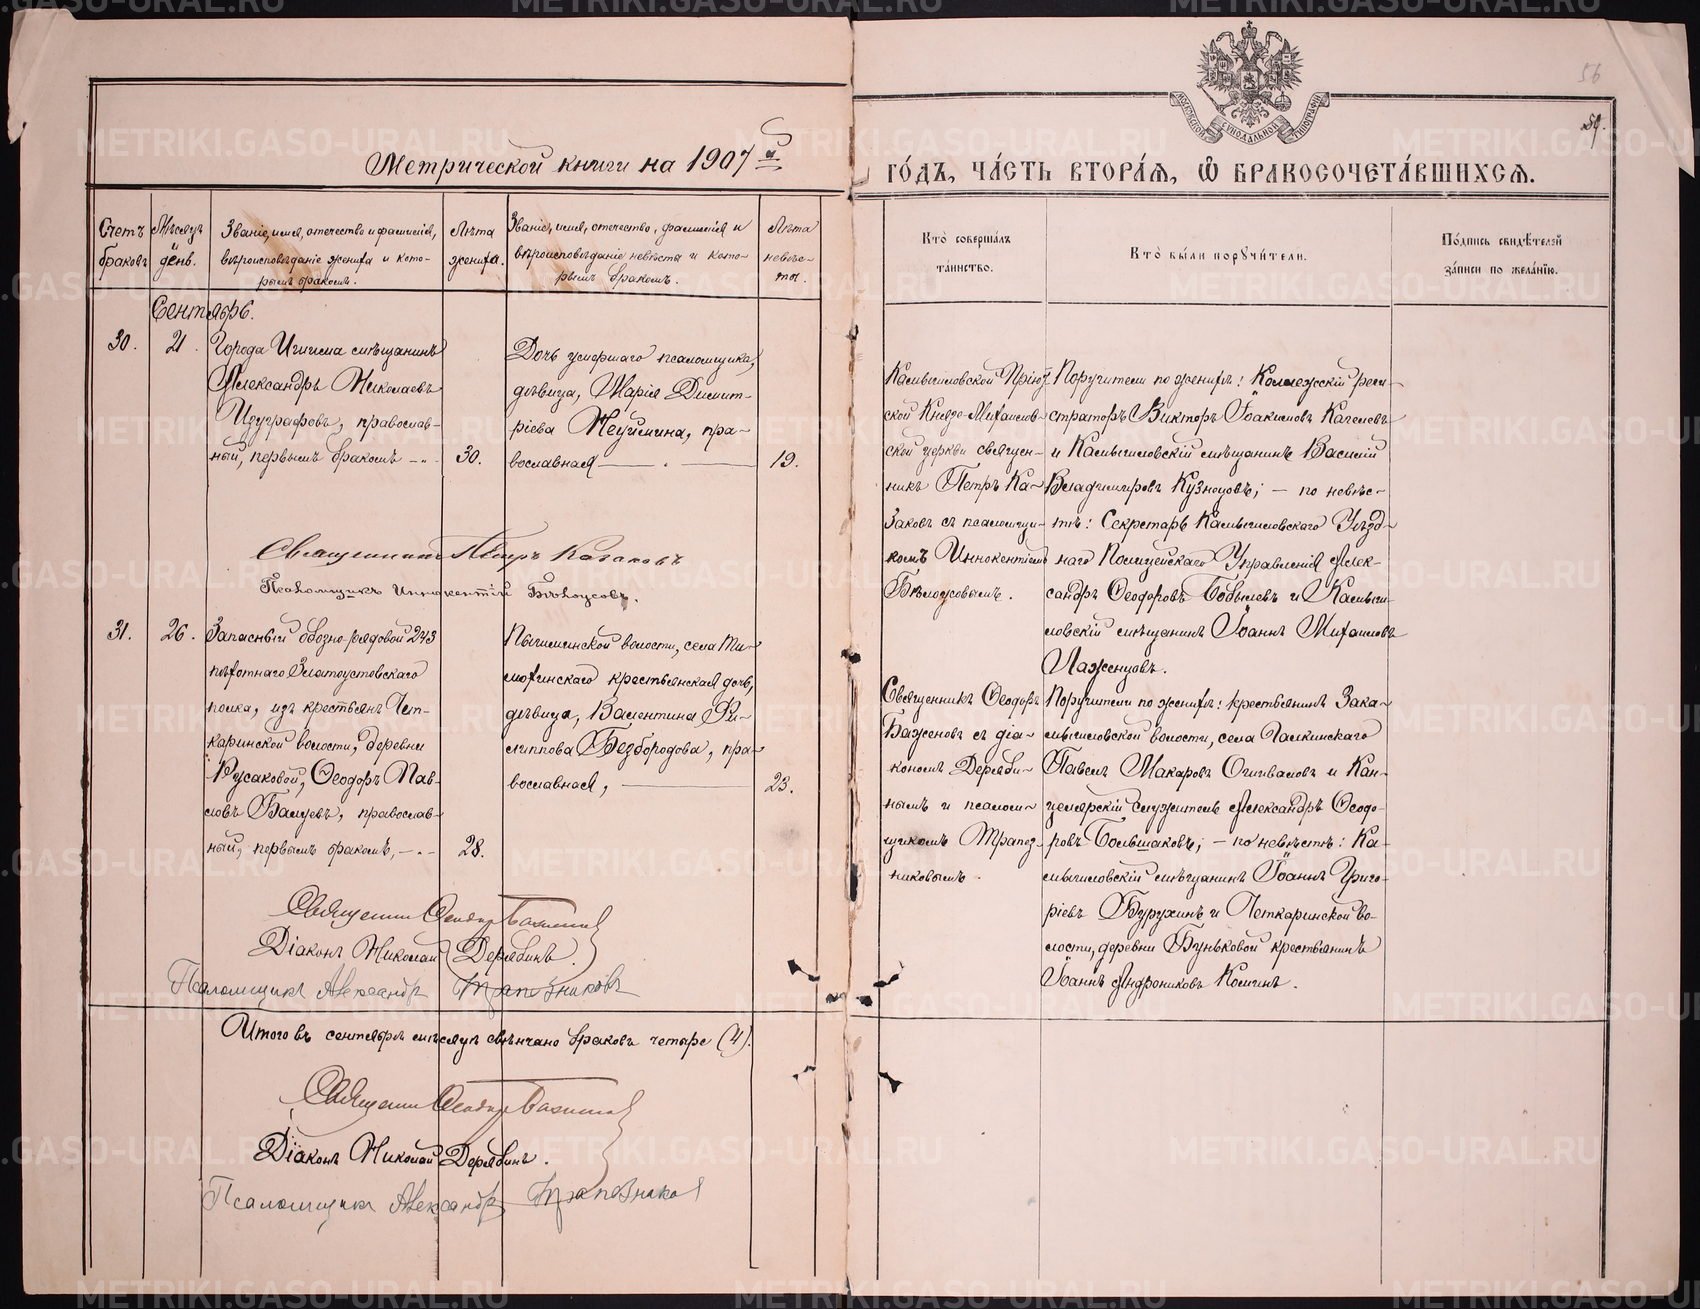 56
59.
МОСКОВСКОЙ СУНОДАЛЬНОЙ ТИПОГРАФІИ
Метрической книги на 1907 й
го́дъ, ча́сть втора́ѧ, ѡ҆ бракосочета́вшихсѧ.
Счетъ браковъ
Мѣсяцъ день.
Званіе, имя, отечество и фамилія,
вѣроисповѣданіе жениха и кото-
рымъ бракомъ.
Лѣта
жениха.
Званіе, имя, отечество, фамилія и
вѣроисповѣданіе невѣсты и кото-
рымъ бракомъ.
Лѣта
невѣс-
ты.
Кто̀ соверша́лъ
та́инство.
Кто̀ бы́ли порꙋчи́тели.
По́дпись свидѣ́телей
за́писи по жела́нїю.
Сентябрь.
30.
21
Города Ишима мѣщанинъ
Александръ Николаевъ
Изуграфовъ, православ-
ный, первымъ бракомъ
30.
Дочь умершаго псаломщика,
дѣвица, Марія Димит-
ріева Неуймина, пра-
вославная
19.
Камышловской Пріют-
ской Князе-Михаилов-
ской церкви священ-
никъ Петръ Ка-
заковъ съ псаломщи-
комъ Иннокентіемъ
Бѣлоусовымъ.
Поручители по женихѣ: Коллежскій реги-
страторъ Викторъ Іоакимовъ Качевъ
и Камышловскій мѣщанинъ Василій
Владиміровъ Кузнецовъ; — по невѣс-
тѣ: Секретарь Камышловскаго Уѣзд-
наго Полицейскаго Управленія Алек-
сандръ Ѳеодоровъ Бобылевъ и Камыш-
ловскій мѣщанинъ Іоаннъ Михаиловъ
Лаженцовъ.
Священникъ Петръ Казаковъ
Псаломщикъ Иннокентій Бѣлоусовъ.
31.
26.
Запасный обозно-рядовой 243
пѣхотнаго Златоустовскаго
полка, изъ крестьянъ Чет-
каринской волости, деревни
Русаковой, Ѳеодоръ Пав-
ловъ Балуевъ, православ-
ный, первымъ бракомъ,
28.
Пышминской волости, села Ти-
мохинскаго крестьянская дочь,
дѣвица, Валентина Фи-
липпова Безбородова, пра-
вославная,
23.
Священникъ Ѳеодоръ
Баженовъ съ діа-
кономъ Деряби-
нымъ и псалом-
щикомъ Трапез-
никовымъ.
Поручители по женихѣ: крестьянинъ Зака-
мышловской волости, села Галкинскаго
Павелъ Макаровъ и Кан-
целярскій служитель Александръ Ѳеодо-
ровъ Большаковъ; — по невѣстѣ: Ка-
мышловскій мѣщанинъ Іоаннъ Григо-
ріевъ Бурухинъ и Четкаринской во-
лости, деревни Буньковой крестьянинъ
Іоаннъ Андрониковъ Коминъ.
Священникъ Ѳеодоръ Баженовъ
Діаконъ Николай Дерябинъ.
Псаломщикъ Александръ Трапезниковъ
Итого въ сентябрѣ мѣсяцѣ свѣнчано браковъ четыре (4).
Священникъ Ѳеодоръ Баженовъ
Діаконъ Николай Дерябинъ.
Псаломщикъ Александръ Трапезниковъ
METRIKI.GASO-URAL.RU